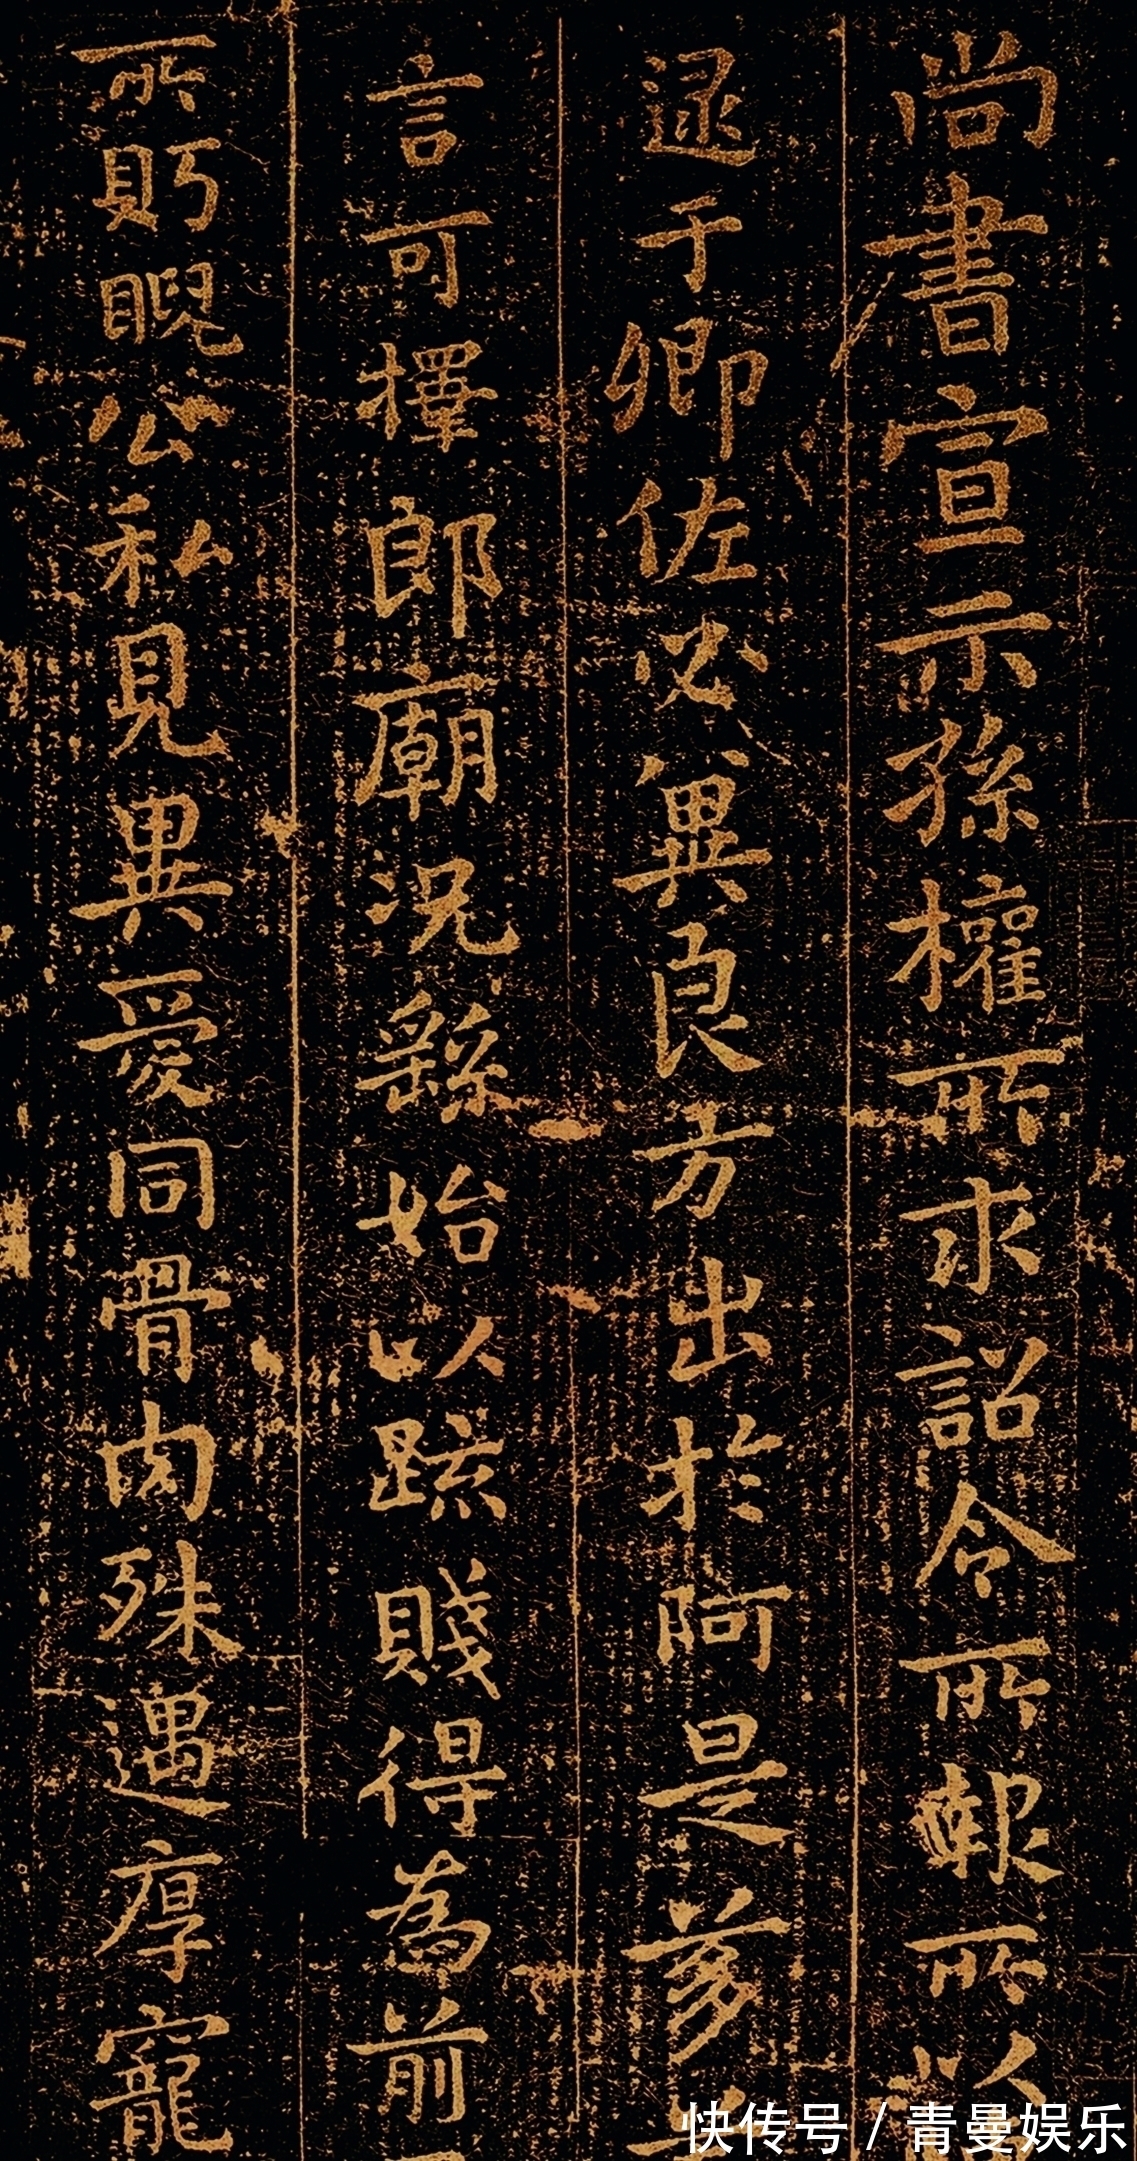 尚書宣示孫權所求詔令所報所以
逮于卿佐必異良方出於阿是蒭
言可擇郎廟況繇始以疏賤得為前
所眄睨公私見異愛同骨肉殊遇厚寵
快传号 / 青曼娱乐